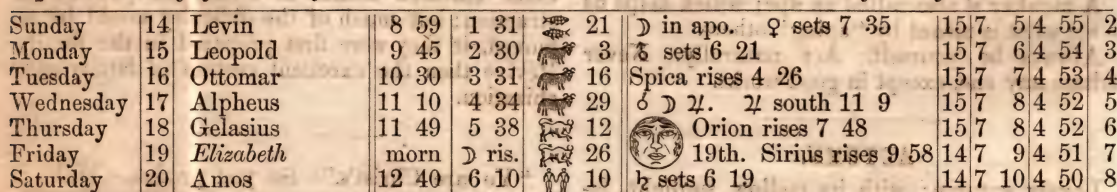 Sunday 14 Levin 8 59 1 31 ♓ 21 ☽ in apo. ♀ sets 7 35 15 7 5 4 55 2
Monday 15 Leopold 9 45 2 30 ♈ 3 ☿ sets 6 21 15 7 6 4 54 3
Tuesday 16 Ottomar 10 30 3 31 ♈ 16 Spica rises 4 26 15 7 7 4 53 4
Wednesday 17 Alpheus 11 10 4 34 ♈ 29 ☌ ☽ ♃. ♃ south 11 9 15 7 8 4 52 5
Thursday 18 Gelasius 11 49 5 38 ♉ 12 Orion rises 7 48 15 7 8 4 52 6
Friday 19 Elizabeth morn ☽ ris. ♉ 26 19th. Sirius rises 9 58 14 7 9 4 51 7
Saturday 20 Amos 12 40 6 10 ♊ 10 ♄ sets 6 19 14 7 10 4 50 8